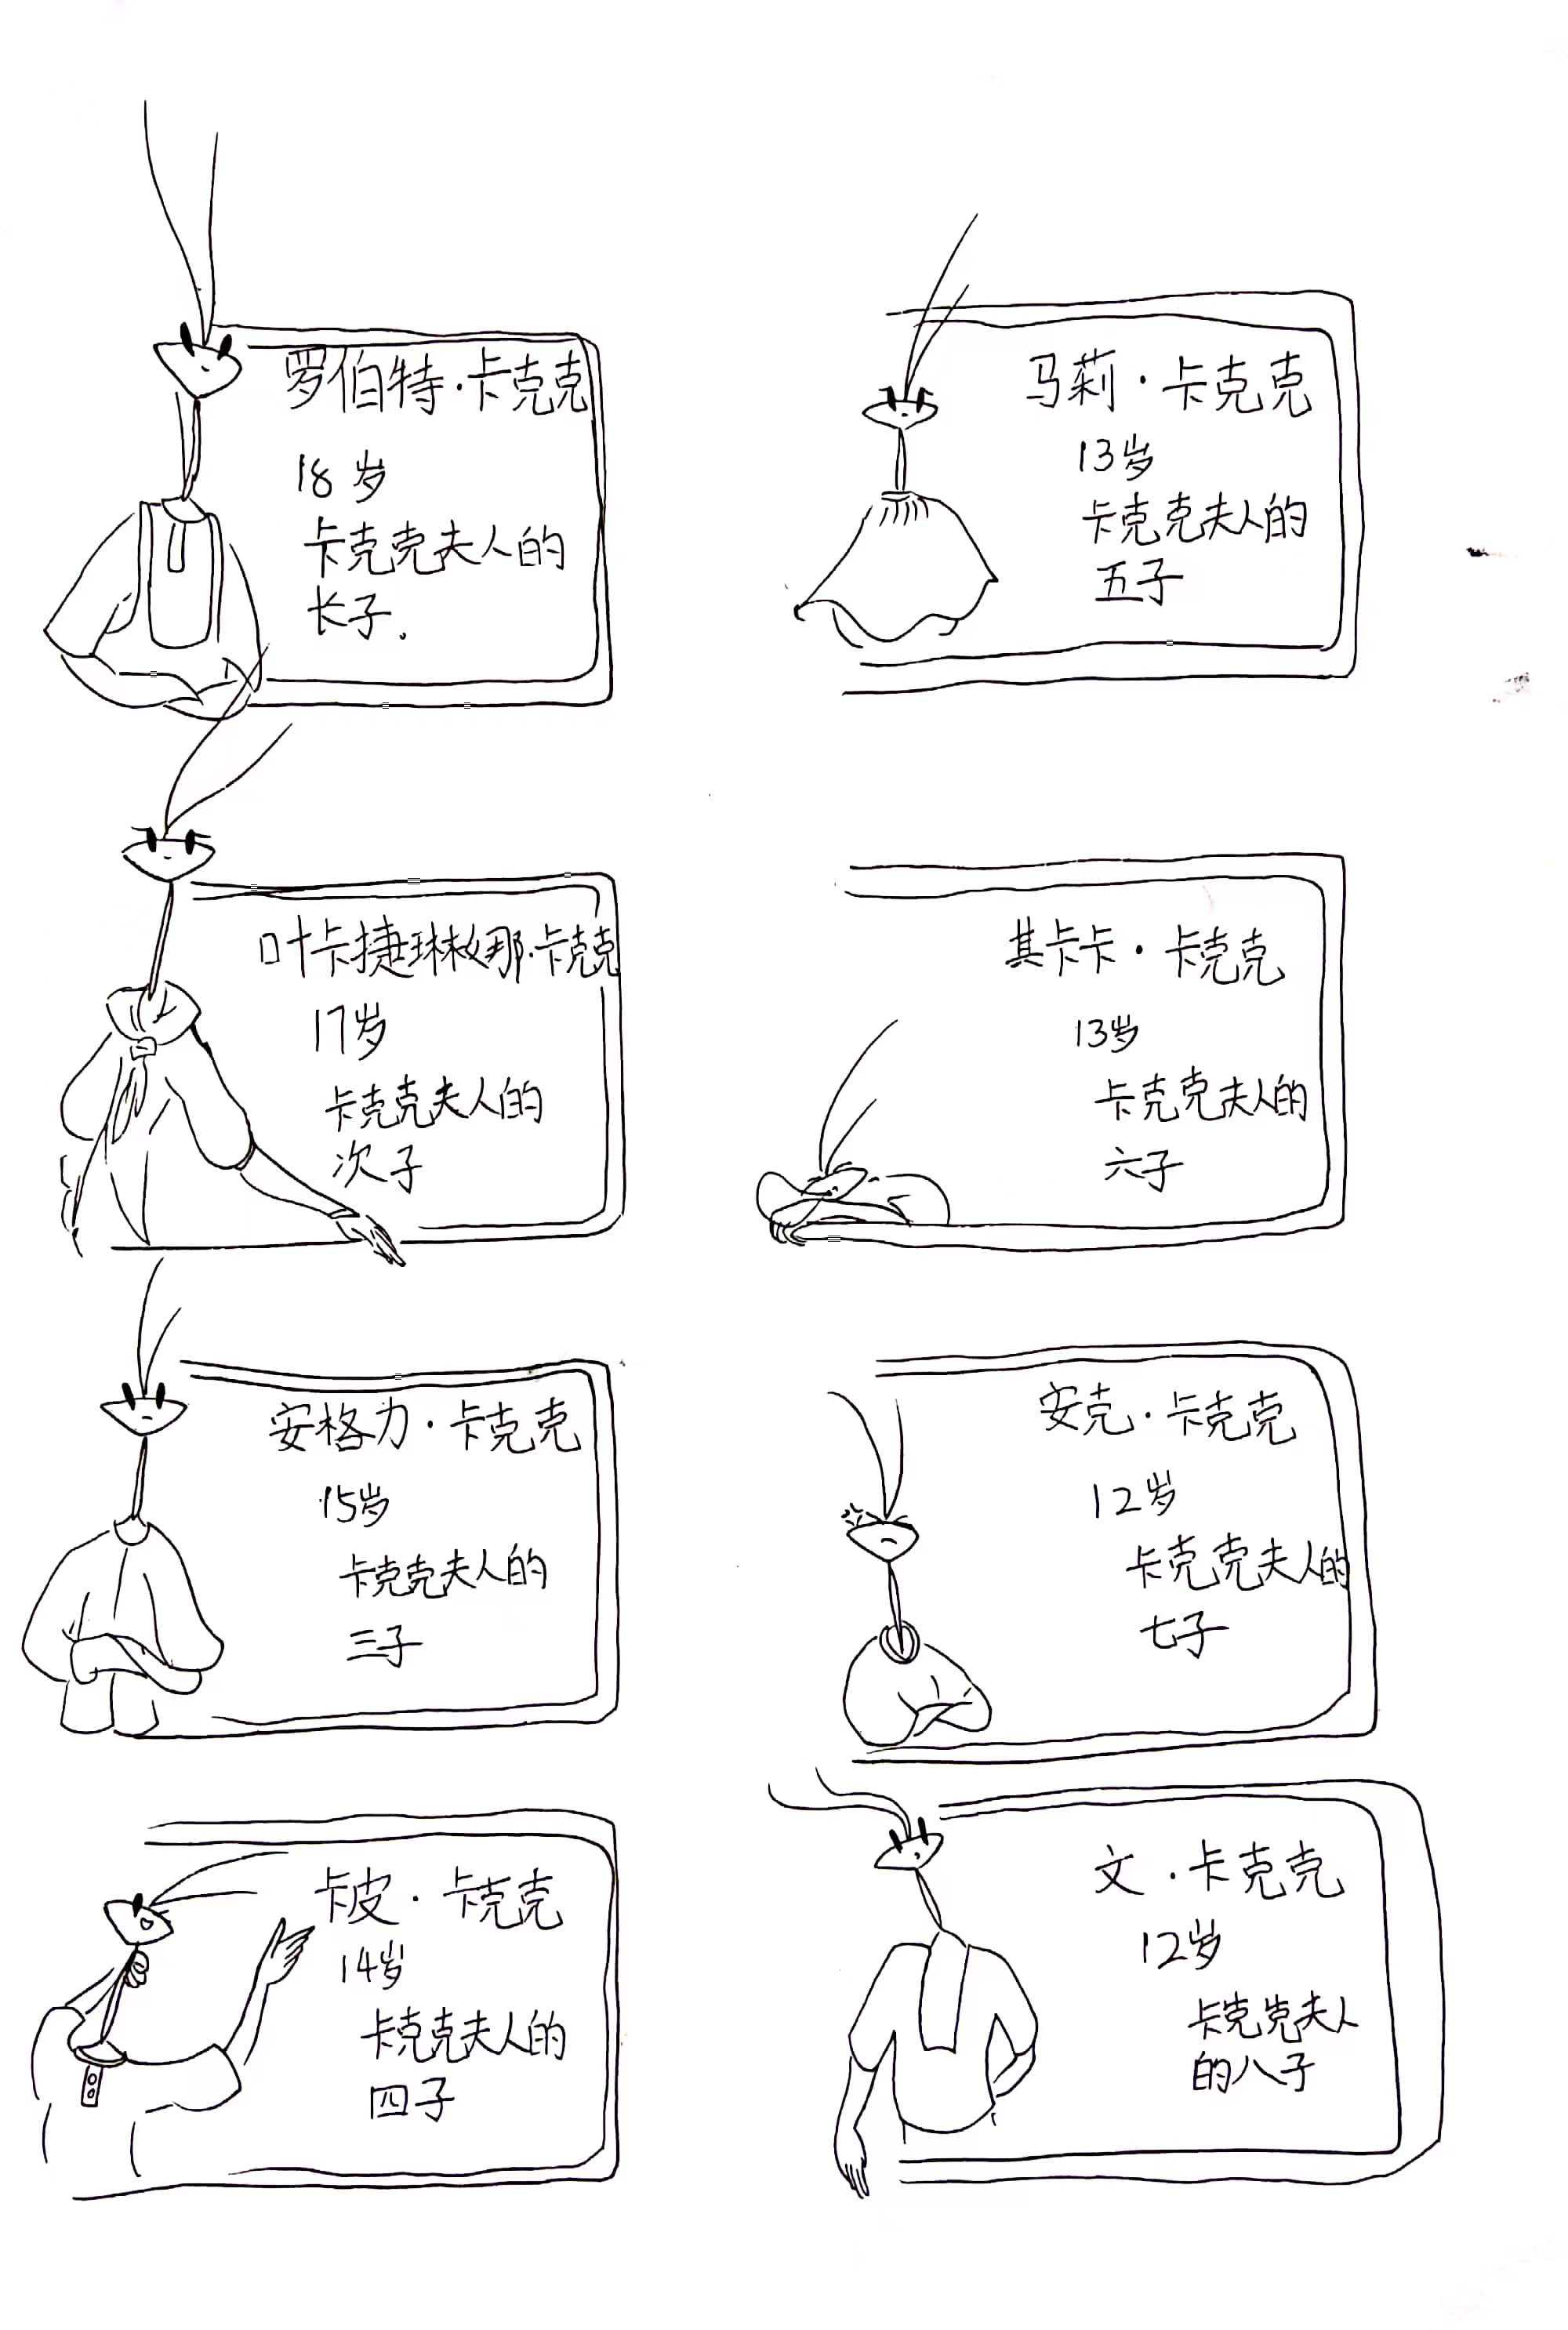 罗伯特·卡克克
18岁
卡克克夫人的
长子.
叶卡捷琳娜·卡克克
17岁
卡克克夫人的
次子
安格力·卡克克
15岁
卡克克夫人的
三子
卡皮·卡克克
14岁
卡克克夫人的
四子
马莉·卡克克
13岁
卡克克夫人的
五子
其卡卡·卡克克
13岁
卡克克夫人的
六子
安克·卡克克
12岁
卡克克夫人的
七子
文·卡克克
12岁
卡克克夫人
的八子